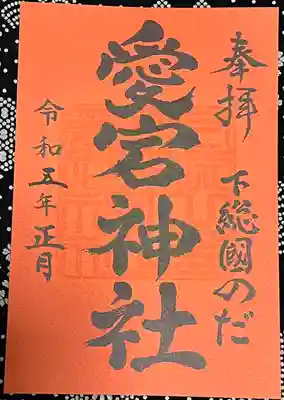 奉拝 下総國のだ
愛宕神社
令和五年正月